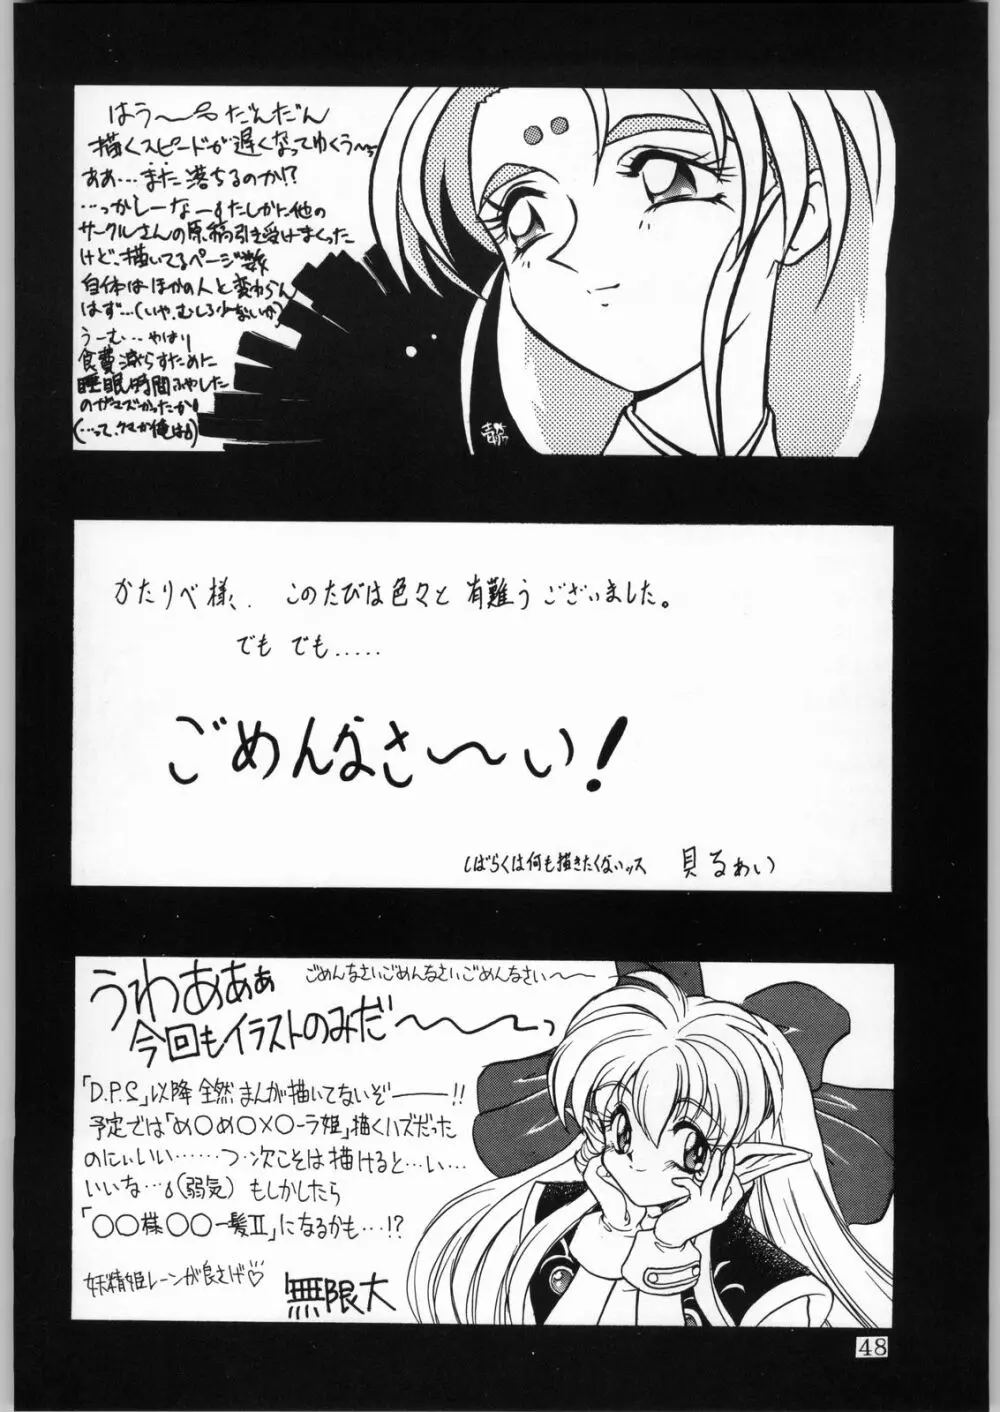 はう～っだんだん
描くスピードが遅くなってゆくう～っ
ああ…また落ちるのか!?
…っかしーなーたしかに他の
サークルさんの原稿引き受けまくった
けど、描いてるページ数
自体はほかの人と変わらん
はず…(いや、むしろ少ないか)
うーむ…やはり
食費減らすために
睡眠時間ふやした
のがマズかったか!
(…って、クマか俺は)
かたりべ様、このたびは色々と有難うございました。
でもでも.....
ごめんなさ～い!
しばらくは何も描きたくないッス 貝るぁい
うわあああ
ごめんなさいごめんなさいごめんなさい～～
今回もイラストのみだ～～～っ
「D.P.S」以降全然まんが描いてないぞ――!!
予定では「め〇め〇×〇ーラ姫」描くハズだった
のにぃいい……つ・次こそは描けると…い…
いいな…(弱気) もしかしたら
「〇〇様〇〇一髪Ⅱ」になるかも…!?
妖精姫レーンが良さげ♡
無限大
48